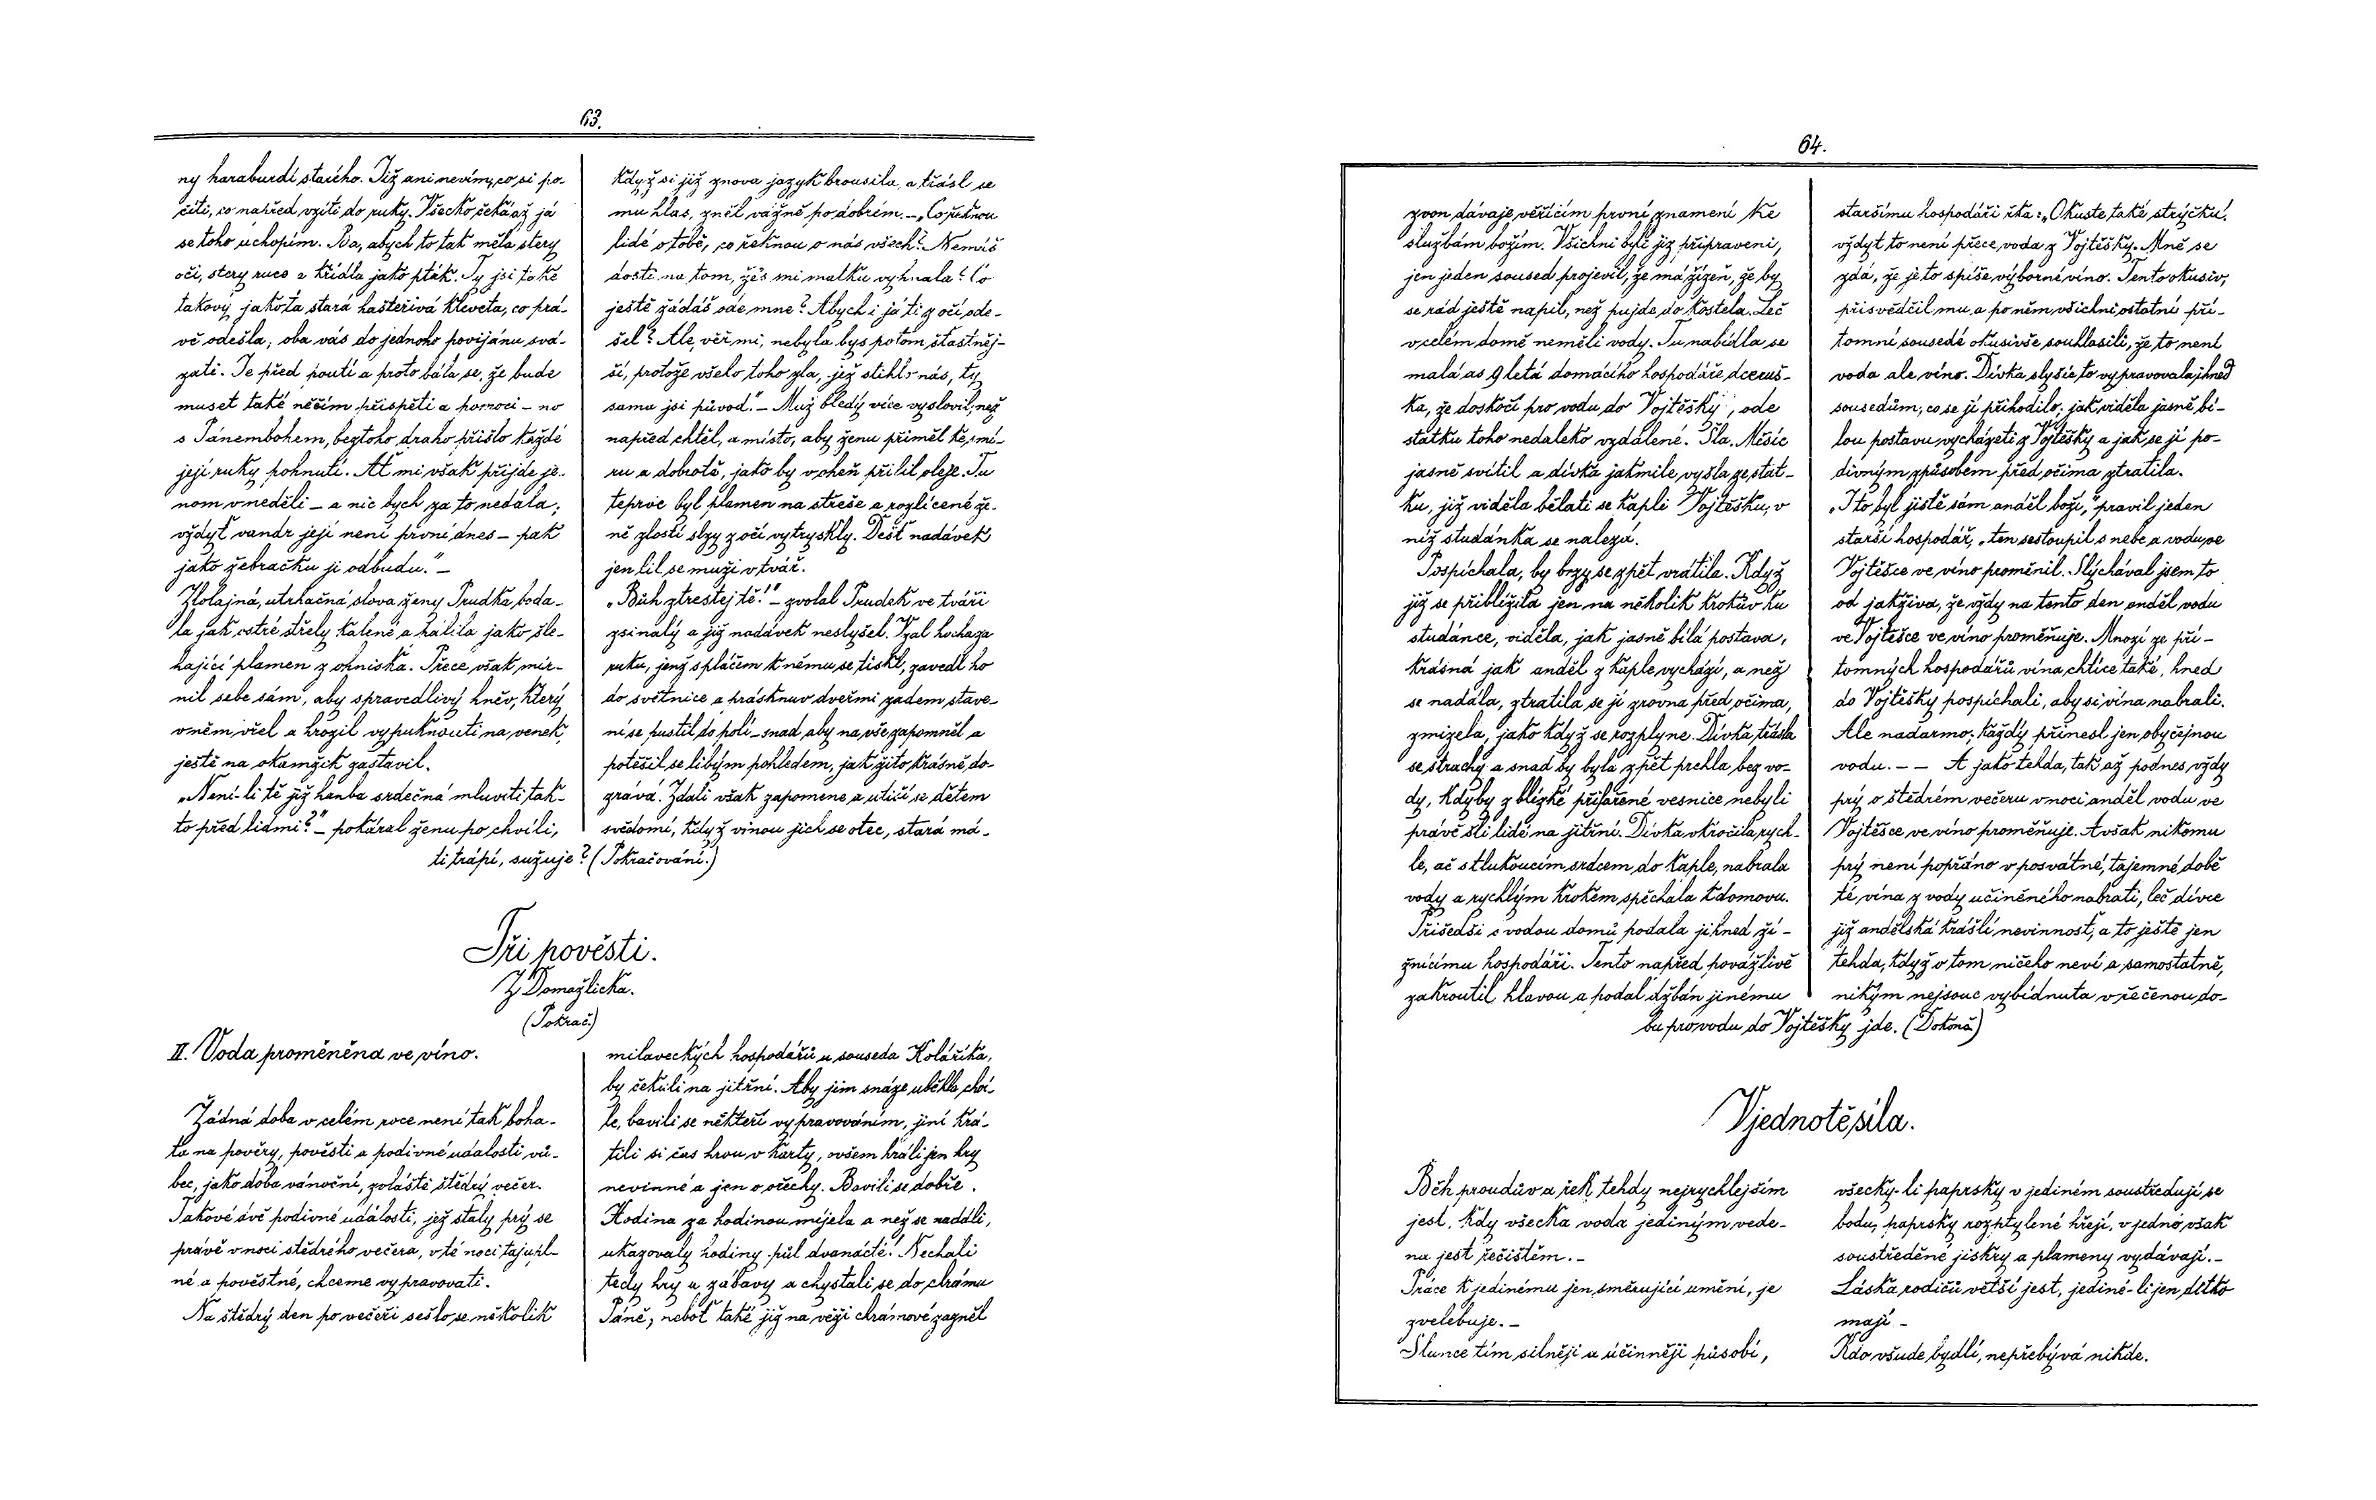 63.
ny haraburdí starého. Již ani nevím, co si po-
číti, co napřed vzíti do ruky. Všecko čeká až já
se toho uchopím. Ba, abych to tak měla štery
oči, štery ruce a křídla jako pták. Ty jsi také
takový, jako ta stará hašteřivá kleveta, co prá-
vě odešla; oba vás do jednoho povijánu svá-
zati. Je před poutí a proto bála se, že bude
muset také něčím přispěti a pomoci – no
s Pánembohem, beztoho draho přišlo každé
její ruky pohnutí. Ať mi však přijde je-
nom v neděli – a nic bych za to nedala;
vždyť vandr její není první dnes – pak
jako žebračku ji odbudu." –
Zlolajná, utrhačná slova ženy Prudka boda-
la jak ostré střely kalené a pálila jako šle-
hající plamen z ohniska. Přece však mír-
nil sebe sám, aby spravedlivý hněv, který
v něm vřel a hrozil vypuknouti na venek,
ještě na okamžik zastavil.
„Není-li tě již hanba srdečná mluviti tak-
to před lidmi?" – pokáral ženu po chvíli,
když si již znova jazyk brousila, a třásl se
mu hlas, zněl vážně po dobrém. – „Co řeknou
lidé o tobě, co řeknou o nás všech? Nemáš
dosti na tom, žes mi matku vyhnala? Co
ještě žádáš ode mne? Abych i já ti z očí ode-
šel? Ale, věř mi, nebyla bys potom šťastněj-
ší, protože všeho toho zla, jež stihlo nás, ty
sama jsi původ." – Muž bledý více vyslovil, než
napřed chtěl, a místo, aby ženu přiměl ke smí-
ru a dobrotě, jako by v oheň přilil oleje. Tu
teprve byl plamen na střeše a rozlícené že-
ně zlostí slzy z očí vytryskly. Déšť nadávek
jen lil se muži v tvář.
„Bůh ztrestej tě!" – zvolal Prudek ve tváři
zsinalý a již nadávek neslyšel. Vzal hocha za
ruku, jenž s pláčem k němu se tiskl, zavedl ho
do světnice a prásknuv dveřmi zadem stave-
ní se pustil do polí – snad aby na vše zapomněl a
potěšil se libým pohledem, jak žito krásně do-
zrává. Zdali však zapomene a utiší se dětem
svědomí, když vinou jich se otec, stará má-
ti trápí, sužuje? (Pokračování.)
Tři pověsti.
Z Domažlicka.
(Pokrač.)
II. Voda proměněna ve víno.
Žádná doba v celém roce není tak boha-
ta na pověry, pověsti a podivné události vů-
bec, jako doba vánoční, zvláště štědrý večer.
Takové dvě podivné události, jež staly prý se
právě v noci štědrého večera, v té noci tajupl-
né a pověstné, chceme vypravovati.
Na štědrý den po večeři sešlo se několik
milaveckých hospodářů u souseda Kolaříka,
by čekali na jitřní. Aby jim snáze uběhla chví-
le, bavili se někteří vypravováním, jiní krá-
tili si čas hrou v karty, ovšem hráli jen hry
nevinné a jen o ořechy. Bavili se dobře.
Hodina za hodinou míjela a než se nadáli,
ukazovaly hodiny půl dvanácté. Nechali
tedy hry a zábavy a chystali se do chrámu
Páně, neboť také již na věži chrámové zazněl
64.
zvon dávaje věřícím první znamení ke
službám božím. Všichni byli již připraveni,
jen jeden soused projevil, že má žízeň, že by
se rád ještě napil, než pujde do kostela. Leč
v celém domě neměli vody. Tu nabídla se
malá as 9 letá domácího hospodáře dceruš-
ka, že doskočí pro vodu do Vojtěšky, ode
statku toho nedaleko vzdálené. Šla. Měsíc
jasně svítil a dívka jakmile vyšla ze stat-
ku, již viděla bělati se kapli Vojtěšku, v
níž studánka se nalezá.
Pospíchala, by brzy se zpět vrátila. Když
již se přiblížila jen na několik kroků ku
studánce, viděla, jak jasně bílá postava,
krásná jak anděl z kaple vychází, a než
se nadála, ztratila se jí zrovna před očima,
zmizela, jako když se rozplyne. Dívka třásla
se strachy a snad by byla zpět prchla bez vo-
dy, kdyby z blízké přifařené vesnice nebyli
právě šli lidé na jitřní. Dívka vkročila rych-
le, ač s tlukoucím srdcem do kaple, nabrala
vody a rychlým krokem spěchala k domovu.
Přišedši s vodou domů podala ji hned ží-
znícímu hospodáři. Tento napřed povážlivě
zakroutil hlavou a podal džbán jinému
staršímu hospodáři řka: „Okuste také strýčku,
vždyt to není přece voda z Vojtěšky. Mně se
zdá, že je to spíše výborné víno. Tento okusiv,
přisvědčil mu a po něm všichni ostatní pří-
tomní sousedé okusivše souhlasili, že to není
voda ale víno. Dívka slyšíc to vypravovala ihned
sousedům, co se jí přihodilo; jak viděla jasně bí-
lou postavu vycházeti z Vojtěšky a jak se jí po-
divným způsobem před očima ztratila.
„I to byl jistě sám anděl boží," pravil jeden
starší hospodář, „ten sestoupil s nebe a vodu ve
Vojtěšce ve víno proměnil. Slýchával jsem to
od jakživa, že vždy na tento den anděl vodu
ve Vojtěšce ve víno proměňuje. Mnozí ze pří-
tomných hospodářů vína chtíce také, hned
do Vojtěšky pospíchali, aby si vína nabrali.
Ale nadarmo. Každý přinesl jen obyčejnou
vodu. – – A jako tehda, tak až podnes vždy
prý o štědrém večeru v noci anděl vodu ve
Vojtěšce ve víno proměňuje. Avšak nikomu
prý není popřáno v posvátné, tajemné době
té vína z vody učiněného nabrati, leč dívce
již andělská krášlí nevinnost, a to ještě jen
tehda, když o tom ničeho neví a samostatně,
nikým nejsouc vybídnuta v řečenou do-
bu pro vodu do Vojtěšky jde. (Dokonč.)
V jednotě síla.
Běh proudův a řek tehdy nejrychlejším
jest, kdy všecka voda jediným vede-
na jest řečištěm. –
Práce k jedinému jen směrující umění, je
zvelebuje. –
Slunce tím silněji a účinněji působí,
všecky-li paprsky v jediném soustředují se
bodu, paprsky rozptylené hřejí, v jedno však
soustředěné jiskry a plameny vydávají. –
Láska rodičů větší jest, jediné-li jen dítko
mají –
Kdo všude bydlí, nepřebývá nikde.